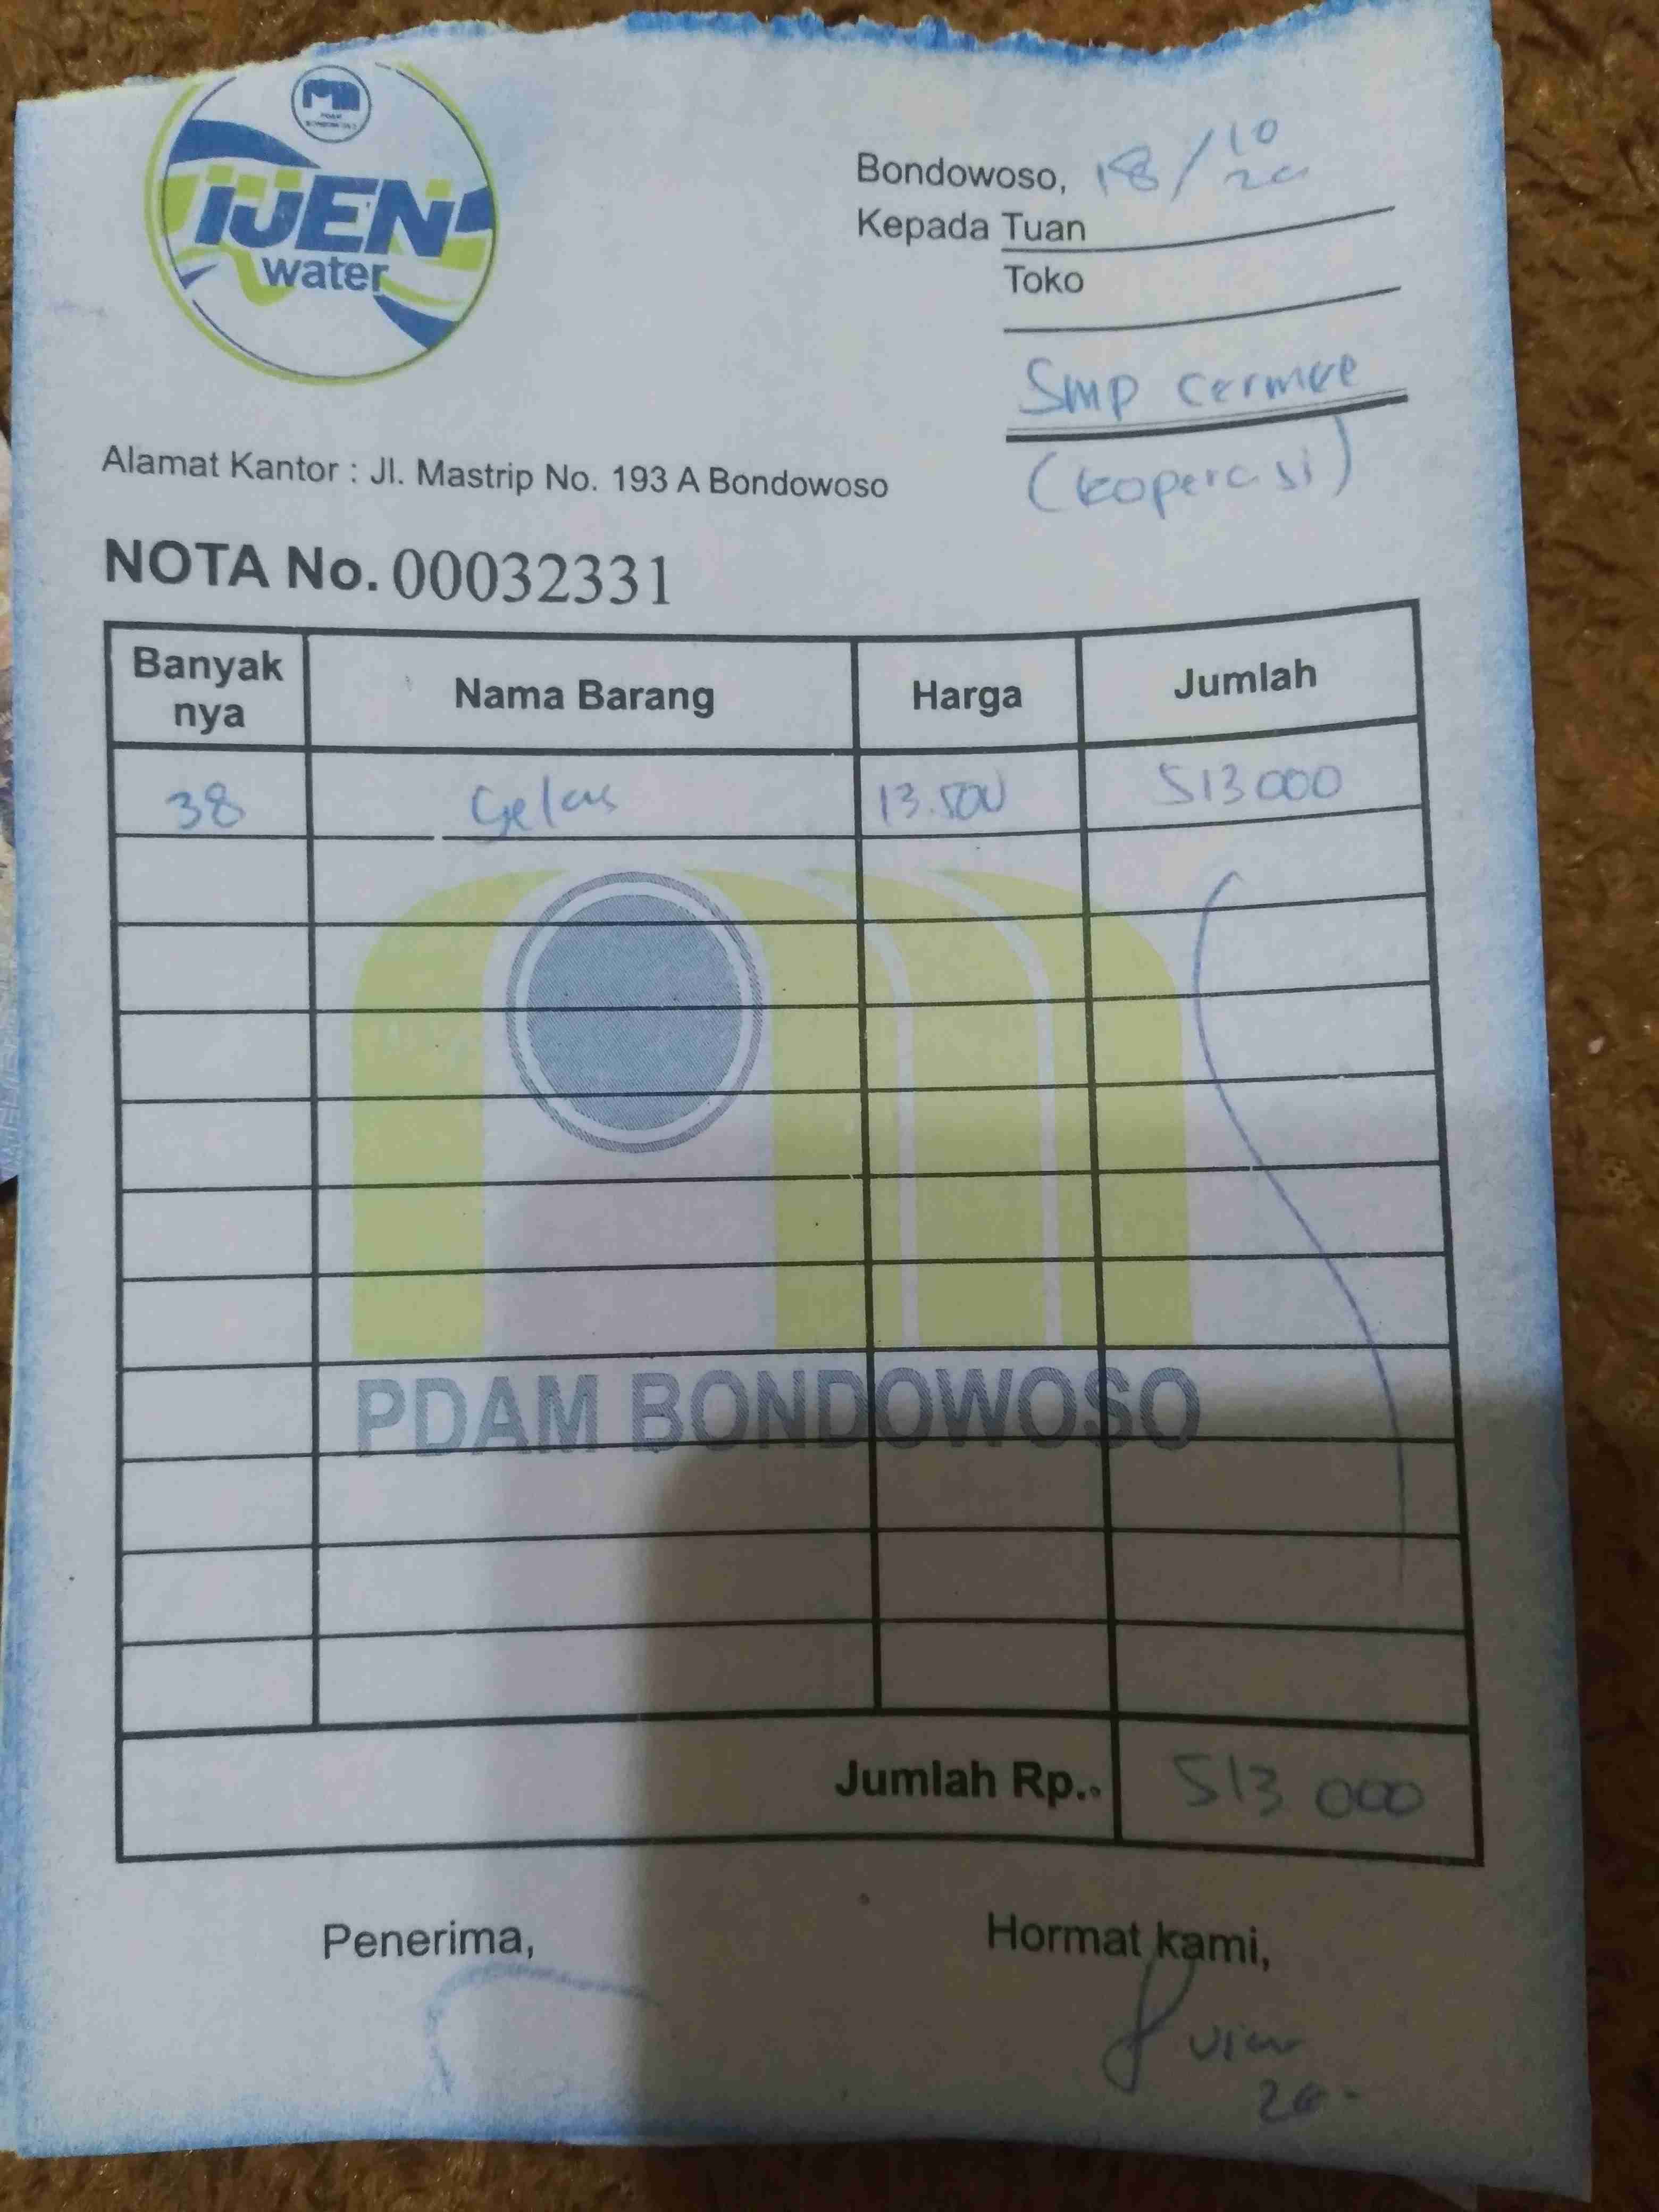 PDAM
IJEN
water
Bondowoso, 18/10
Kepada Tuan
Toko
Smp cermee
(koperasi)
Alamat Kantor : Jl. Mastrip No. 193 A Bondowoso
NOTA No. 00032331
Banyak nya Nama Barang Harga Jumlah
38 Gelas 13.500 513 000
PDAM BONDOWOSO
Jumlah Rp.. 513 000
Penerima, Hormat kami,